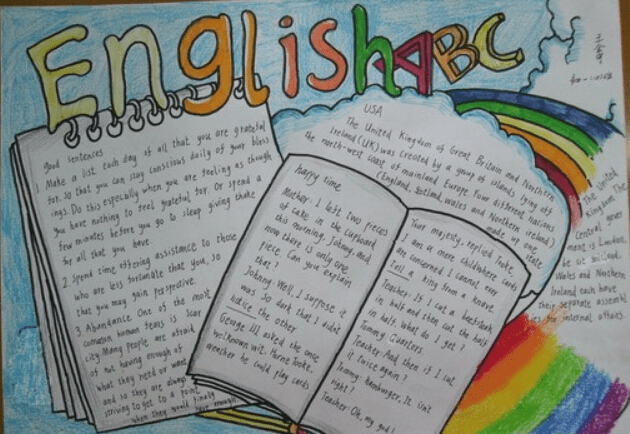 English ABC
good sentences
1. Make a list each day of all that you are grateful
for. So that you can stay conscious daily of your bless
ings. Do this especially when you are feeling as though
you have nothing to feel grateful for. Or spend a
few minutes before you go to sleep giving thanks
for all that you have.
2. Spend time offering assistance to those
who are less fortunate that you, so
that you may gain perspective.
3. Abundance One of the most
common human fears is scar
city. Many people are afraid
of not having enough of
what they need or want
and so they are always
striving to get to a point
when they would finally
have enough
happy time
Mother: I left two pieces
of cake in the cupboard
this morning, Johnny, and
now there is only one
piece. Can you explain
that?
Johnny: Well, I suppose it
was so dark that I didn't
notice the other
George III asked the once
well known wit. Horne Tooke,
weather he could play cards
Your majesty, replied Tooke,
I am a mere child where cards
are concerned I cannot even
tell a king from a knave
Teacher: If I cut a beefsteak
in half and then cut the half
in half. What do I get?
Tommy: Quarters.
Teacher: And then if I cut
it twice again?
Tommy: Hamburger, It isn't
right!
Teacher: Oh, my god!
USA
The United Kingdom of Great Britain and Northern
Ireland (UK) was created by a group of islands lying off
the north-west coast of mainland Europe. Four different nations
(England, Scotland, wales and Northern ireland)
made up one
state
The United
Kingdom The
Central gover
ment is London,
Wales and Northern
Ireland each have
their separate assembl
ies for internal affairs.